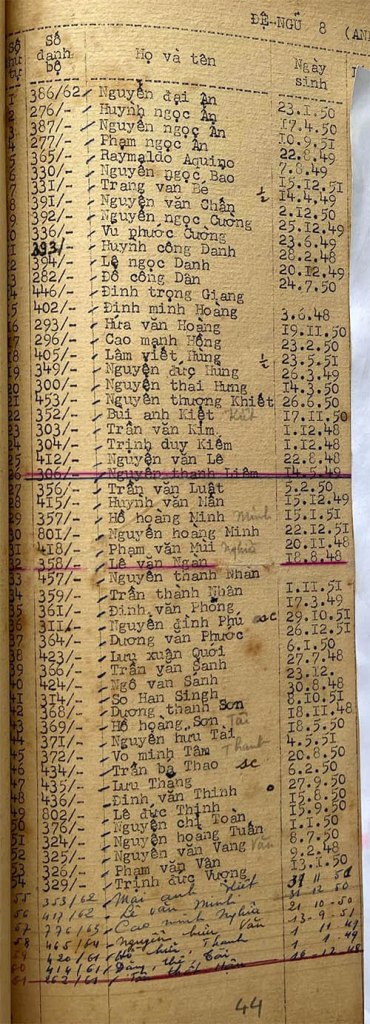 ĐỆ-NGŨ 8 (AN
Số thứ tự Số danh bộ Họ và tên Ngày sinh
1 386/62 Nguyễn đại Ân 23.I.50
276/- Huỳnh ngọc Ẩn 17.4.50
387/- Nguyễn ngọc Ẩn 10.9.51
277/- Phạm ngọc Ẩn 22.8.49
365/- Raymaldo Aquino 7.8.49
330/- Nguyễn ngọc Bảo 15.12.51
331/- Trang văn Bé ½ 14.4.49
391/- Nguyễn văn Chấn 2.12.50
392/- Nguyễn ngọc Cường 25.12.49
336/- Vũ phước Cường 23.6.49
393/- Huỳnh công Danh 28.2.48
394/- Lê ngọc Danh 20.12.49
282/- Đỗ công Dân 24.7.50
446/- Đinh trọng Giang
402/- Đinh minh Hoàng 3.6.48
293/- Hứa văn Hoàng 19.11.50
296/- Cao mạnh Hồng 23.2.50
405/- Lâm viết Hùng ½ 23.5.51
349/- Nguyễn đức Hùng 26.3.49
300/- Nguyễn thái Hưng 14.3.50
453/- Nguyễn thượng Khiết 26.6.50
352/- Bùi anh Kiệt Kiệt 17.11.50
303/- Trần văn Kim 1.12.48
304/- Trịnh duy Kiếm 1.12.48
412/- Nguyễn văn Lê 22.8.48
306/- Nguyễn thanh Liêm 14.5.49
356/- Trần văn Luật 5.2.50
415/- Huỳnh văn Mẫn 15.12.49
357/- Hồ hoàng Minh Minh 15.1.51
801/- Nguyễn hoàng Minh 22.12.51
418/- Phạm văn Mùi Nghĩa 20.11.48
358/- Lê văn Ngàn 18.8.48
457/- Nguyễn thành Nhân
359/- Trần thành Nhân 1.11.51
361/- Đinh văn Phong 17.3.49
311/- Nguyễn đình Phú sc 29.10.51
364/- Dương văn Phước 26.12.51
423/- Lưu xuân Quới 6.1.50
366/- Trần văn Sanh 27.7.48
424/- Ngô văn Sanh 23.12.
314/- So Han Singh 30.8.48
368/- Dương thanh Sơn 8.10.51
369/- Hồ hoàng Sơn Tài 18.11.48
371/- Nguyễn hữu Tài 18.5.50
372/- Võ minh Tâm Thanh 4.5.51
434/- Trần bá Thao sc 20.8.50
435/- Lưu Thăng 6.2.50
436/- Đinh văn Thịnh 27.9.50
802/- Lê đức Thịnh 15.8.50
376/- Nguyễn chí Toàn 15.9.50
324/- Nguyễn hoàng Tuấn 1.1.50
325/- Nguyễn văn Vang Văn 8.7.50
326/- Phạm văn Vân 9.2.48
54 329/- Trịnh đức Vượng 13.1.50
55 353/62 Mai anh Kiệt
56 417/62 Lê văn Minh 31 12 50
Cao minh Nghĩa 21 10-50
58 465/64 Nguyễn hữu Văn 13-9-51
59 420/61 Hồ hữu Thanh
60 414/61 Đặng thế Tài
61
44